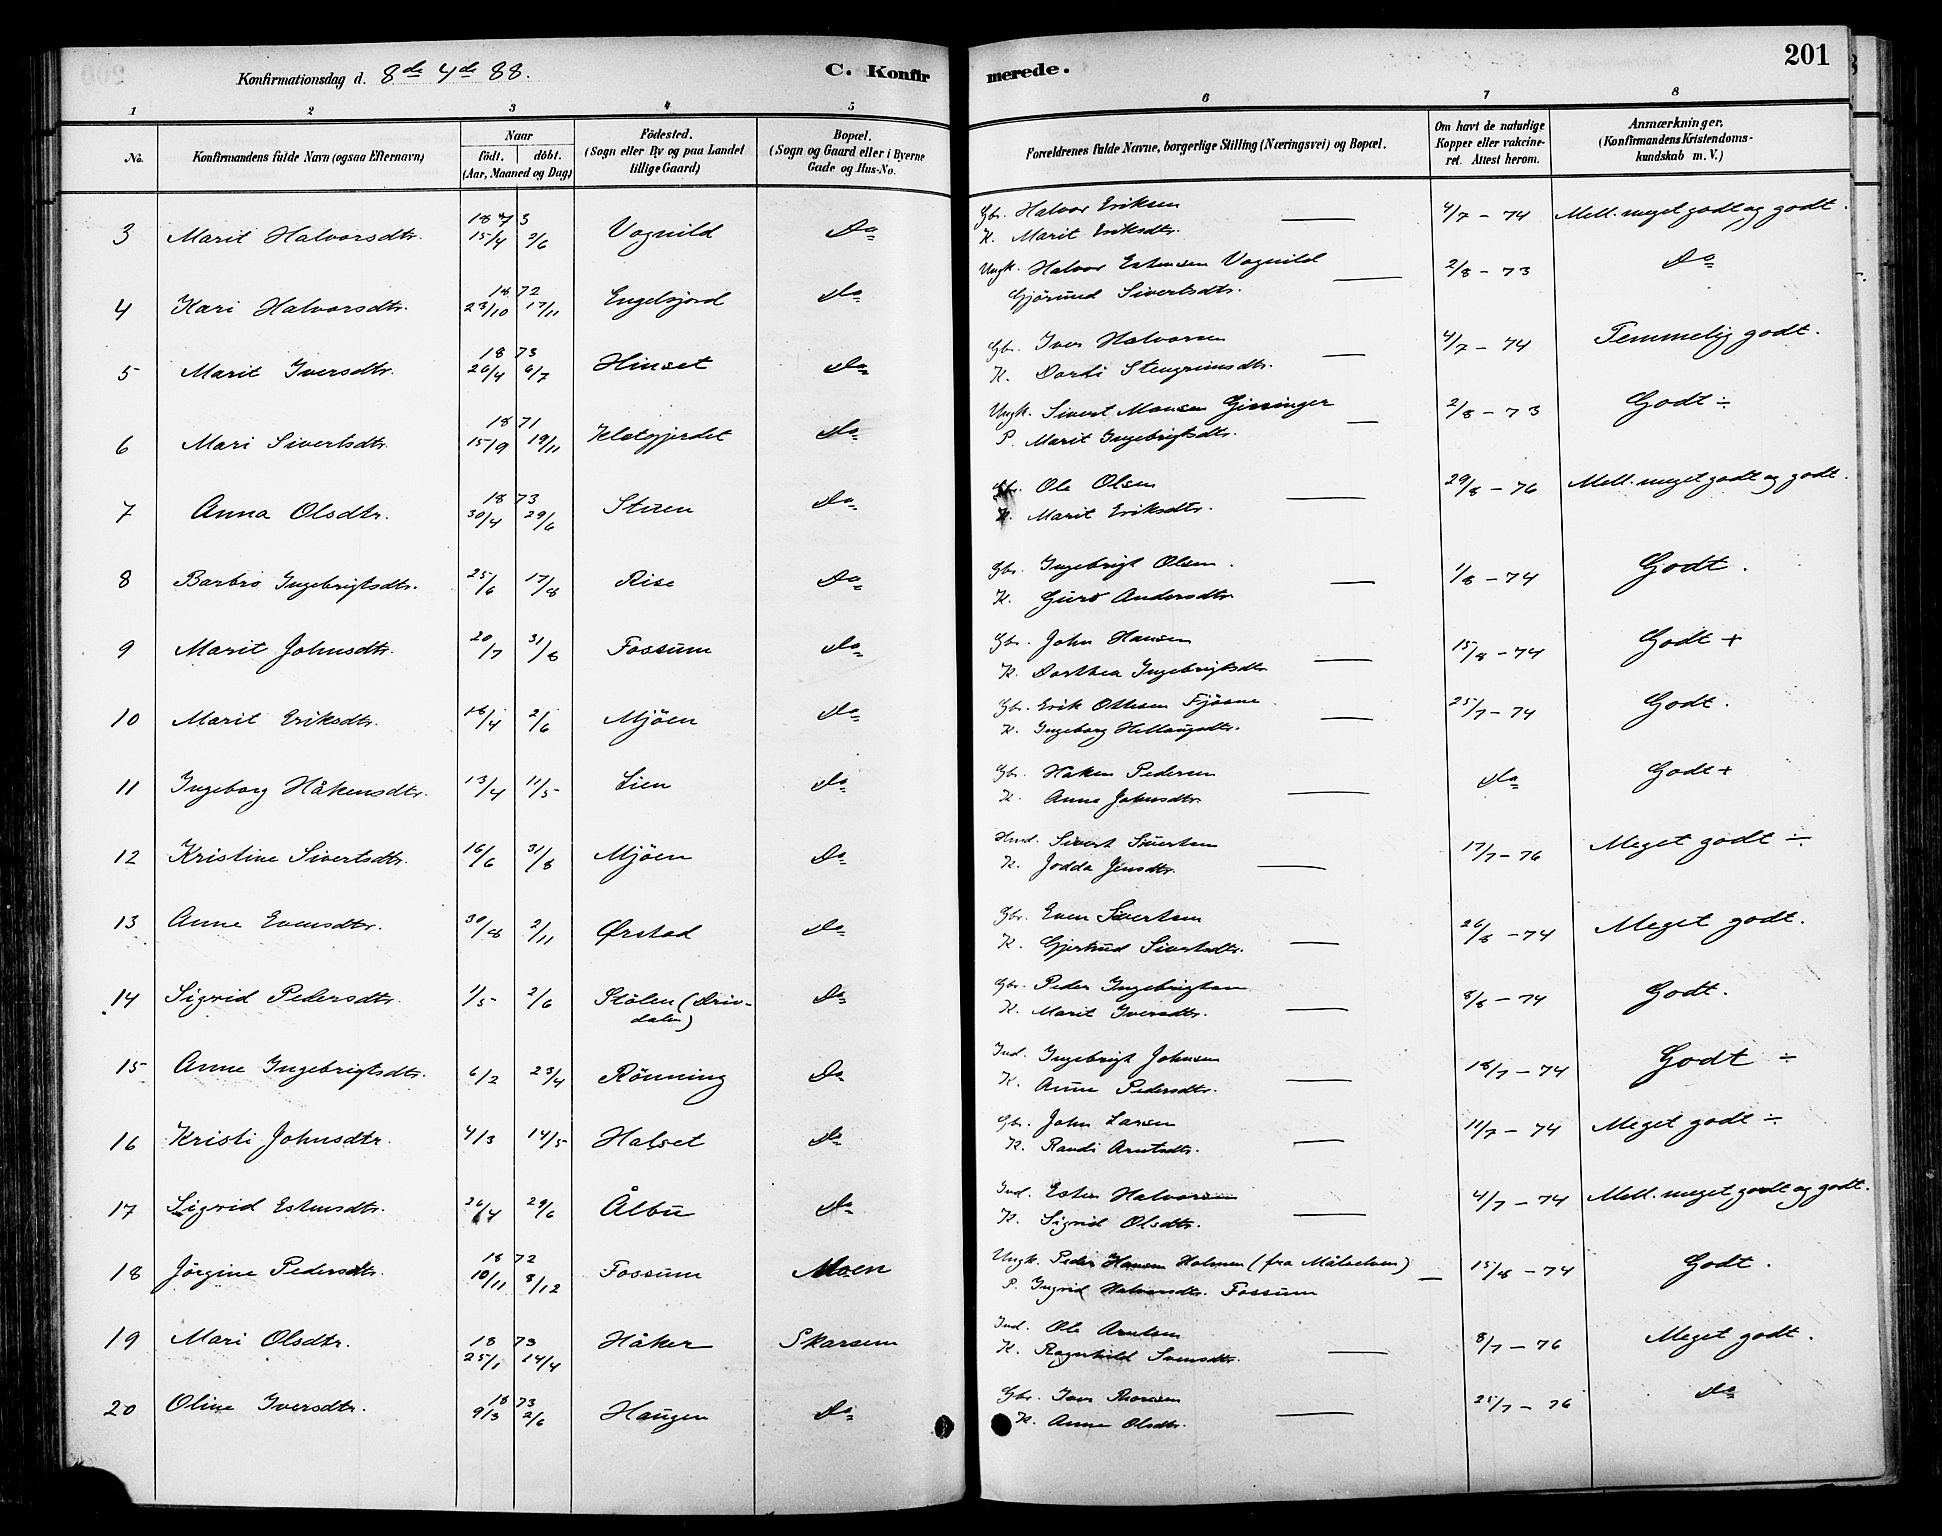 201
Konfirmationsdag d. 8de 4de 88. C. Konfir merede.
1 2 3 4 5 6 7 8
No. Konfirmandens fulde Navn (ogsaa Efternavn) Naar födt. döbt. (Aar, Maaned og Dag) Födested. (Sogn eller By og paa Landet tillige Gaard) Bopæl. (Sogn og Gaard eller i Byerne Gade og Hus-No. Forældrenes fulde Navne, borgerlige Stilling (Næringsvei) og Bopæl. Om havt de naturlige Kopper eller vakcineret. Attest herom. Anmærkninger. (Konfirmandens Kristendomskundskab m. V.)
3 Marit Halvorsdtr. 1873 15/4 2/6 Vognild Do Gbr. Halvor Eriksen — 4/7 - 74 Mell. meget godt og godt.
K. Marit Eriksdtr.
4 Kari Halvorsdtr. 1872 23/10 17/11 Engelsjord Do Ungk. Halvor Estensen Vognild — 2/8 - 73 Do
Gjörund Sivertsdtr.
5 Marit Iversdtr. 1873 26/4 6/7 Hinset Do Gbr. Iver Halvorsen — 4/7 - 74 Temmelig godt.
K. Dordi Stengrimsdtr.
6 Mari Sivertsdtr. 1871 15/9 19/11 Kletgjerdet Do Ungk. Sivert Monsen Gissinger — 2/8 - 73 Godt ÷
P. Marit Ingebrigtsdtr.
7 Anna Olsdtr. 1873 30/4 29/6 Stuen Do Gbr. Ole Olsen — 29/8 - 76 Mell. meget godt og godt.
K. Marit Eriksdtr.
8 Barbro Ingebrigtsdtr. 25/6 17/8 Rise Do Gbr. Ingebrigt Olsen. — 1/8 - 74 Godt.
K. Guro Andersdtr.
9 Marit Johnsdtr. 20/7 31/8 Fossum Do Gbr. John Hansen — 15/8 - 74 Godt +
K. Dorthea Ingebrigtsdtr
10 Marit Eriksdtr. 16/4 2/6 Mjöen Do Gbr. Erik Ottesen Fjösne — 25/7 - 74 Godt.
K. Ingeborg Hellaugsdtr.
11 Ingeborg Håkensdtr. 13/4 11/5 Lien Do Gbr. Haken Pedersen — Do Godt +
K. Anne Johnsdtr.
12 Kristine Sivertsdtr. 16/6 31/8 Mjöen Do Hmd. Sivert Sivertsen — 17/7 - 76 Meget godt ÷
K. Jodda Jensdtr.
13 Anne Evensdtr. 30/8 2/11 Ørstad Do Gbr. Even Sivertsen — 26/8 - 74 Meget godt.
K. Gjertrud Sivertsdtr.
14 Sigrid Pedersdtr. 1/5 2/6 Stölen (Drivdalen) Do Gbr. Peder Ingebrigtsen — 8/8 - 74 Godt.
K. Marit Iversdtr.
15 Anne Ingebrigtsdtr. 6/2 23/4 Rönning Do Ind. Ingebrigt Johnsen — 18/7 - 74 Godt ÷
K. Anne Pedersdtr.
16 Kristi Johnsdtr. 4/3 14/5 Halset Do Gbr. John Larsen — 11/7 - 74 Meget godt ÷
K. Randi Arntsdtr.
17 Sigrid Estensdtr. 26/4 29/6 Ålbu Do Ind. Esten Halvorsen — 4/7 - 74 Mell. meget godt og godt.
K. Sigrid Olsdtr.
18 Jörgine Pedersdtr. 1872 10/11 8/12 Fossum Moen Ungk. Peder Hansen Holmen (fra Målselven) — 15/8 - 74 Godt.
P. Ingrid Halvorsdtr. Fossum
19 Mari Olsdtr. 1873 25/1 14/4 Håker Skarsem Ind. Ole Arntsen — 8/7 - 76 Meget godt.
K. Ragnhild Svensdtr.
20 Oline Iversdtr. 1873 9/3 2/6 Haugen Do Gbr. Iver — 25/7 - 76 Do
K. Anne Olsdtr.